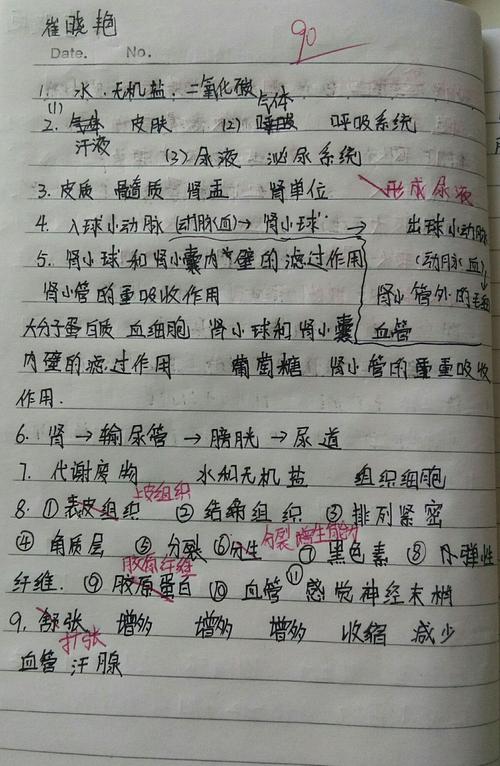 崔晓艳
90
Date. No.
1. 水、无机盐、二氧化碳
2. (1) 气体 皮肤 (2) 气体 呼吸系统
汗液 (3) 尿液 泌尿系统
3. 皮质 髓质 肾盂 肾单位 形成尿液
4. 入球小动脉 (动脉血)→ 肾小球 → 出球小动脉
5. 肾小球和肾小囊内壁的滤过作用 (动脉血)
肾小管的重吸收作用 肾小管外的毛细
大分子蛋白质 血细胞 肾小球和肾小囊 血管
内壁的滤过作用 葡萄糖 肾小管的重吸收
作用.
6. 肾→输尿管→膀胱→尿道
7. 代谢废物 水和无机盐 组织细胞
上皮组织
8. ①表皮组织 ②结缔组织 ③排列紧密
分裂增生能力
④角质层 ⑤分裂 ⑥分生 ⑦黑色素 ⑧弹性
胶原纤维
纤维. ⑨胶原蛋白 ⑩血管 ⑪感觉神经末梢
9. 舒张 增多 增多 增多 收缩 减少
扩张
血管 汗腺